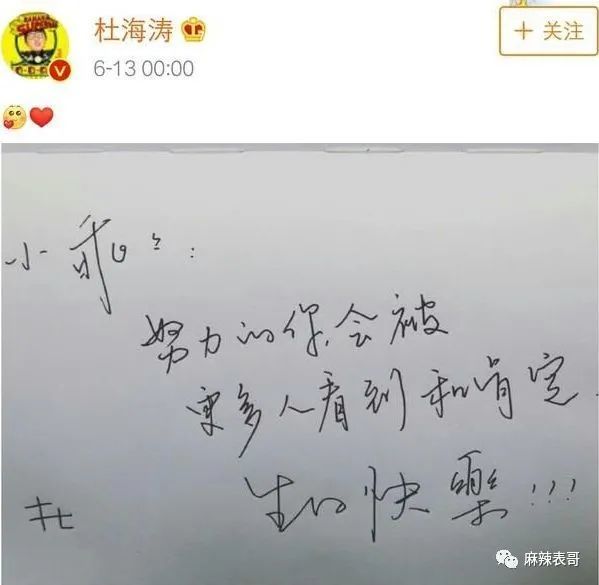 杜海涛
+ 关注
6-13 00:00
小乖々:
努力的你,会被
更多人看到和肯定.
生日快樂!!!
杜
麻辣表哥